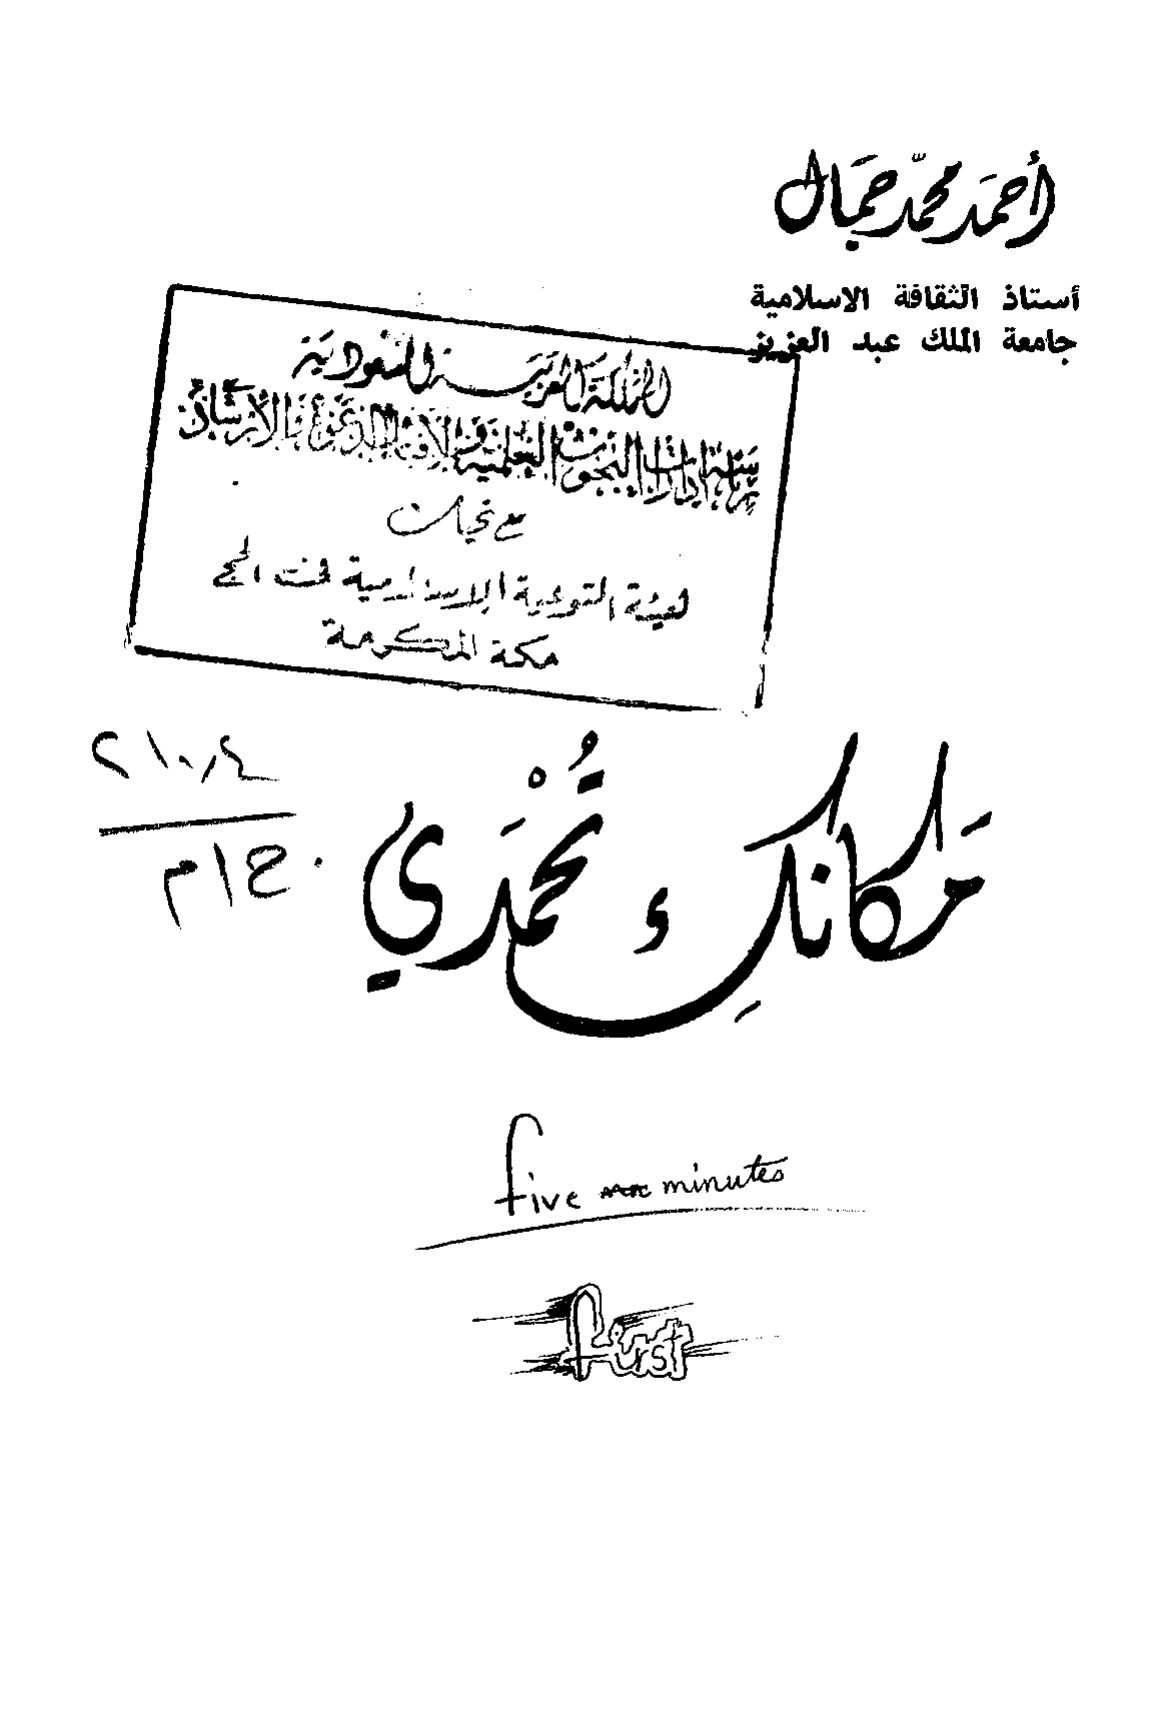 أحمد محمّد جمال
أستاذ الثقافة الاسلامية
جامعة الملك عبد العزيز
المملكة العربية السعودية
رئاسة إدارات البحوث العلمية والإفتاء والدعوة والإرشاد
مع تحيات
هيئة التوعية الإسلامية في الحج
مكة المكرمة
٢١٠,٤
ح ا م
مَكانكِ تُحْمَدي
five minutes
first